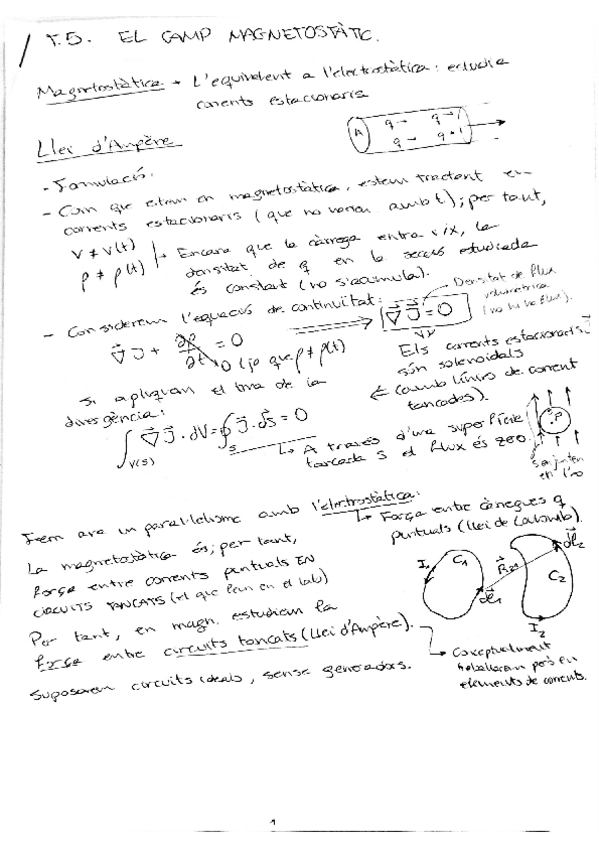 T.5. EL CAMP MAGNETOSTÀTIC.
Magnetostàtica → L'equivalent a l'electrostàtica: estudia
corrents estacionaris
A q→ q→ q→ q→
Llei d'Ampère
- Formulació:
- Com que estem en magnetostàtica, estem tractant en
corrents estacionaris (que no varien amb t); per tant,
v ≠ v(t)
ρ ≠ ρ(t)
→ Encara que la càrrega entra i ix, la
densitat de q en la secció estudiada
és constant (no s'acumula).
- Considerem l'equació de continuïtat:
∇⃗ J⃗ + ∂ρ/∂t = 0
0 (ja que ρ ≠ ρ(t))
⟹ ∇⃗ J⃗ = 0
Densitat de flux
volumètrica
(no hi ha flux).
Els corrents estacionaris J⃗
són solenoidals
⇐ (amb línies de corrent
tancades).
Si apliquem el tma de la
divergència:
∫V(S) ∇⃗ J⃗ · dV = ∮S J⃗ · dS⃗ = 0
↳ A través d'una superfície
tancada S el flux és zero.
ρ
Fem ara un paral·lelisme amb l'electrostàtica:
↳ Força entre càrregues q
puntuals (Llei de Coulomb).
La magnetostàtica és, per tant,
força entre corrents puntuals EN
CIRCUITS TANCATS (el que fem en el lab)
Per tant, en magn. estudiem la
força entre circuits tancats (Llei d'Ampère).
I1 C1 dl⃗1 R21 dl⃗2 C2 I2
↳ Conceptualment
treballarem però en
elements de corrents.
Suposarem circuits ideals, sense generadors.
1